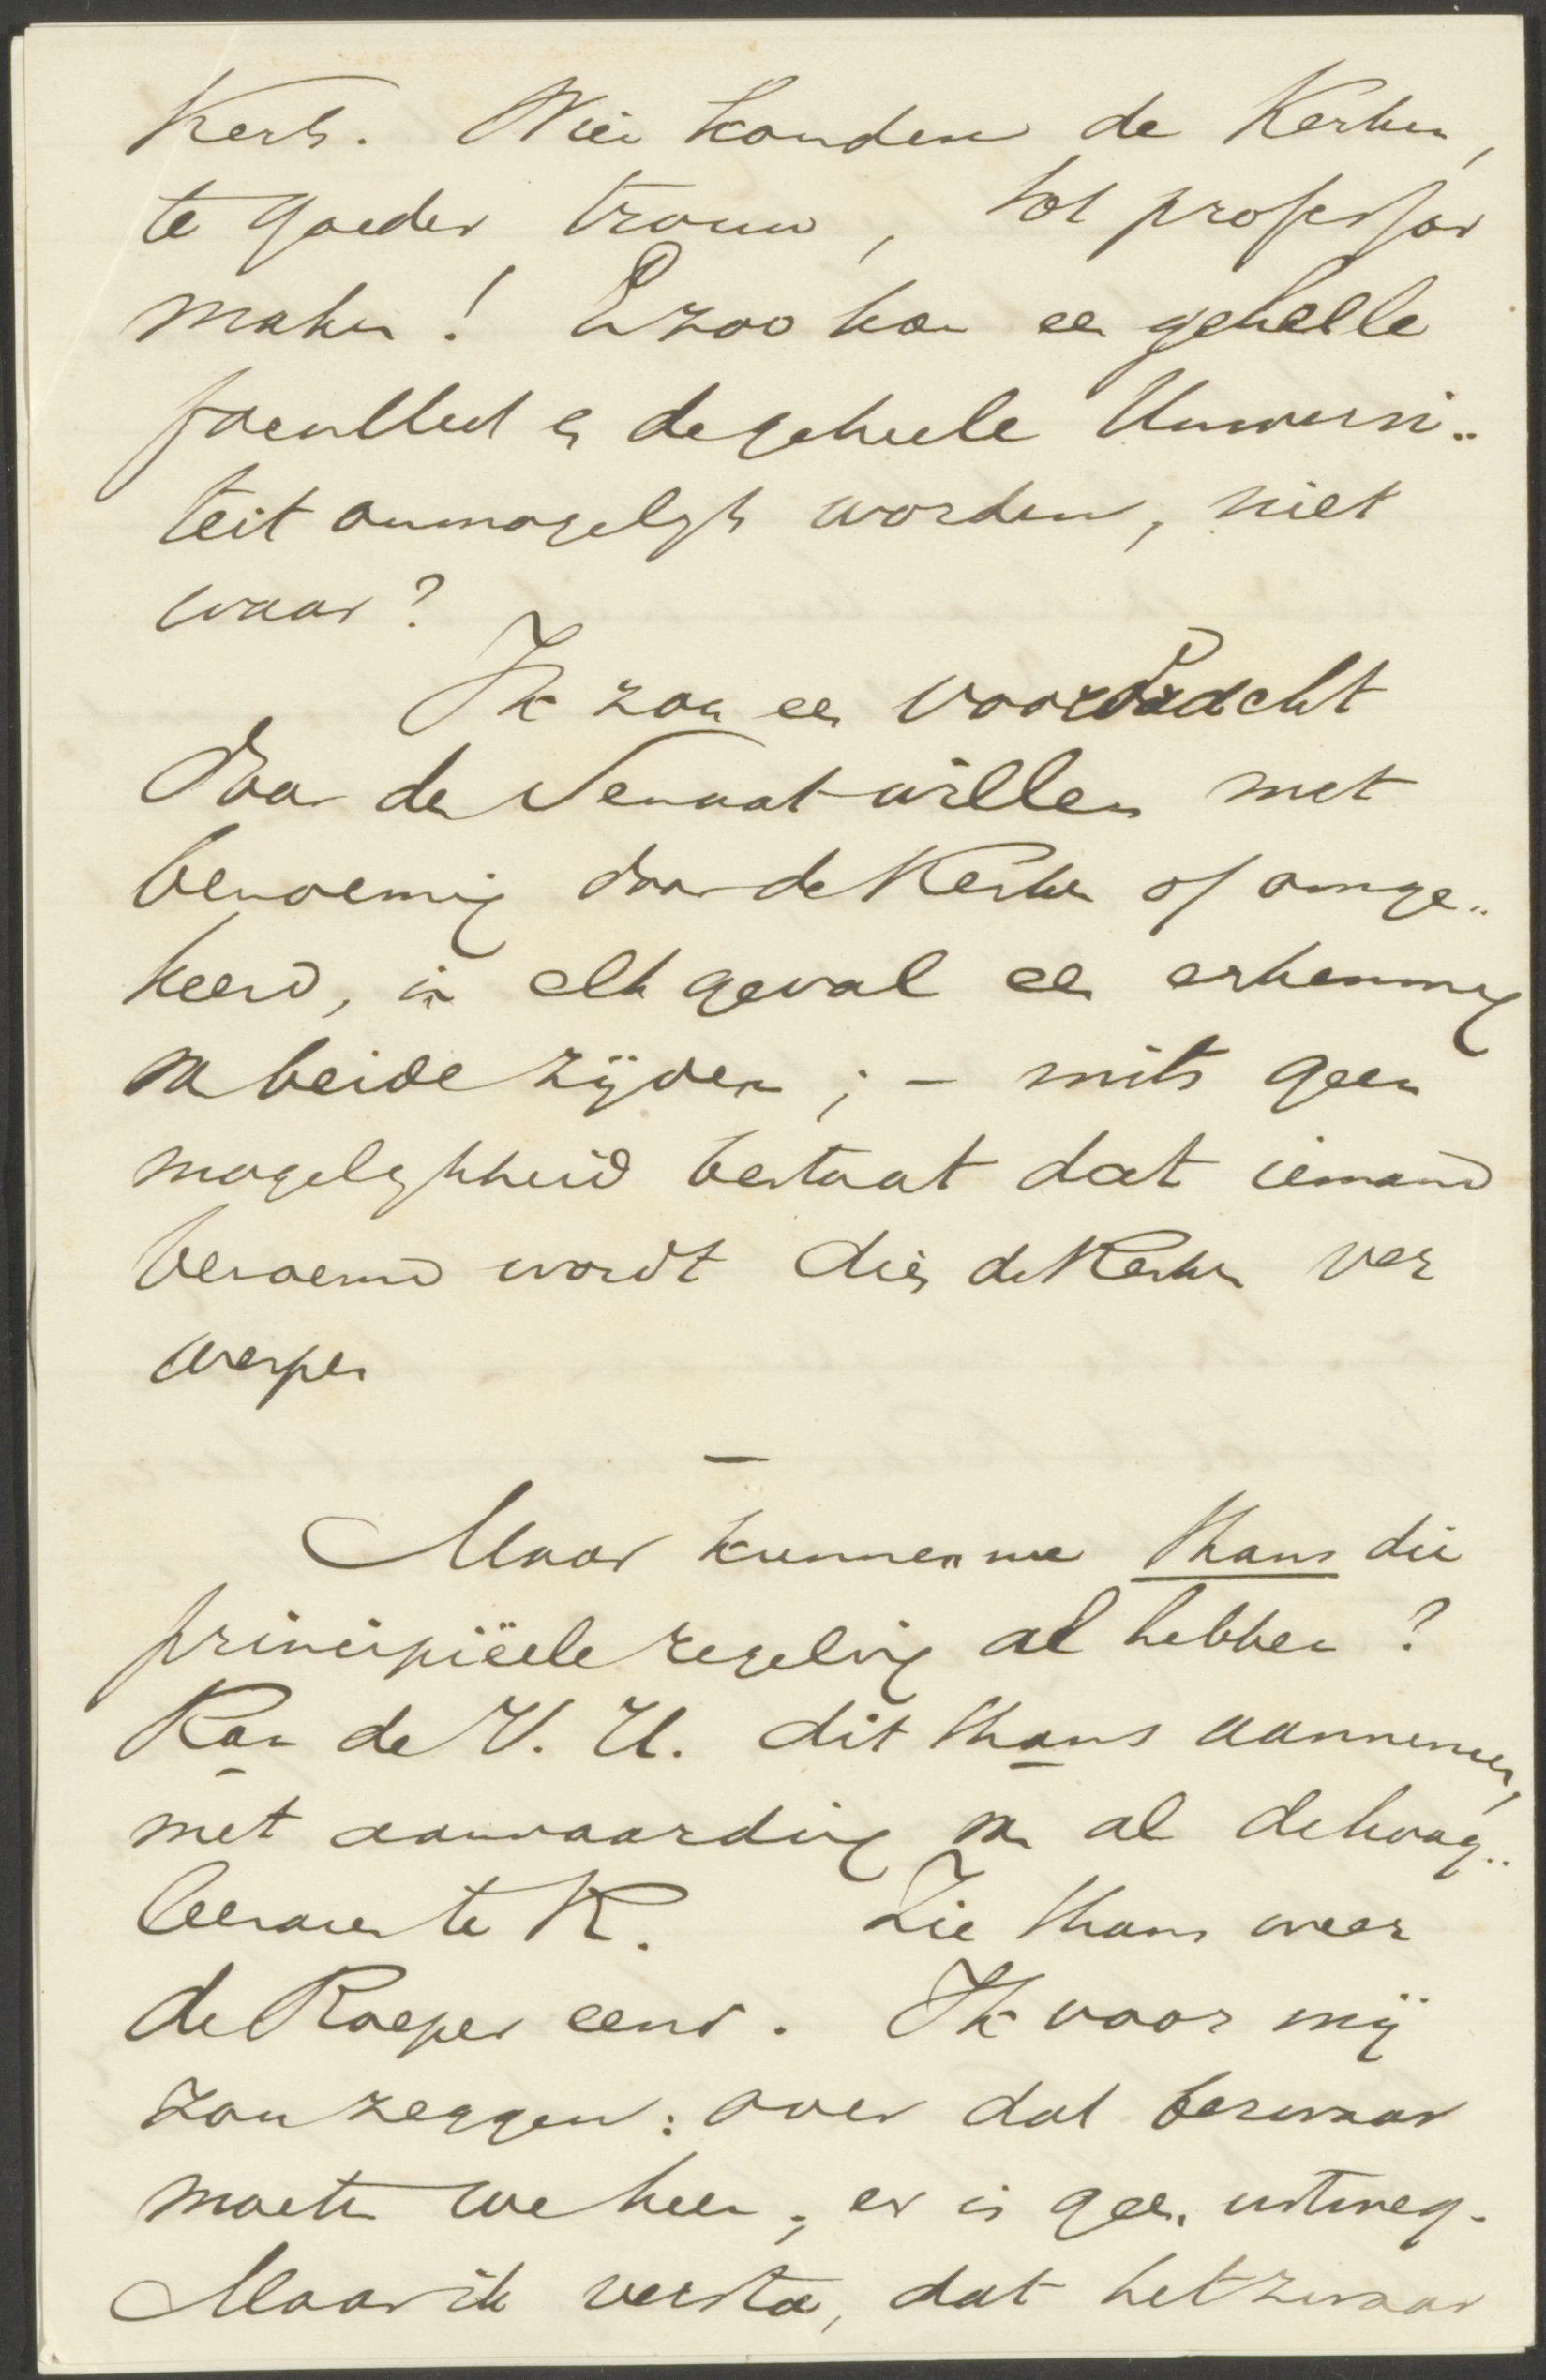 Kerk. Wien konden de Kerken,
te goeder trouw, tot professor
maken! En zoo kan een geheele
faculteit en de geheele Universi..
teit onmogelijk worden, niet
waar?
Ik zou een voordracht
door den Senaat willen met
benoeming door de Kerken of omge..
keerd, in elk geval een erkenning
van beide zijden; - mits geen
mogelijkheid bestaat dat iemand
benoemd wordt dien de Kerken ver
werpen
-
Maar kunnen we thans die
principiëele regeling al hebben?
Kan de V. U. dit thans aannemen,
met aanvaarding van al de hoog..
leeraren te K. Zie thans weer
de Roeper eens. Ik voor mij
zou zeggen: over dat bezwaar
moeten we heen; er is geen uitweg.
Maar ik versta, dat het zwaar